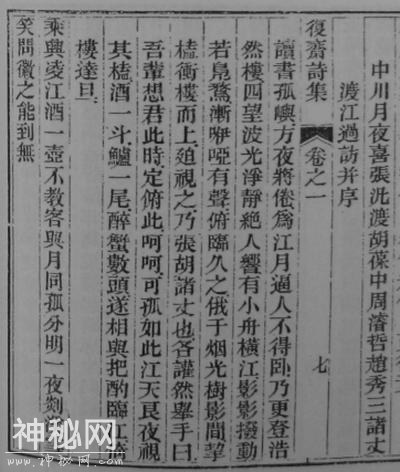 中川月夜喜張沇渡胡葆中周濬哲趙秀三諸丈
渡江過訪并序
復齋詩集 卷之一 七
讀書孤嶼方夜將倦爲江月逼人不得臥乃更登浩
然樓四望波光淨靜絕人響有小舟橫江影影撥動
若鳧鶩漸咿啞有聲俯臨久之俄于烟光樹影間挈
榼衝樓而上廹視之乃張胡諸丈也各讙然舉手曰
吾輩想君此時定俯此呵呵可孤如此江天良夜視
其榼酒一斗鱸一尾醉蟹數頭遂相與把酌臨江
樓達旦
乘興凌江酒一壺不教客與月同孤分明一夜剡
笑問徽之能到無
神秘网
www.shenmiw.com